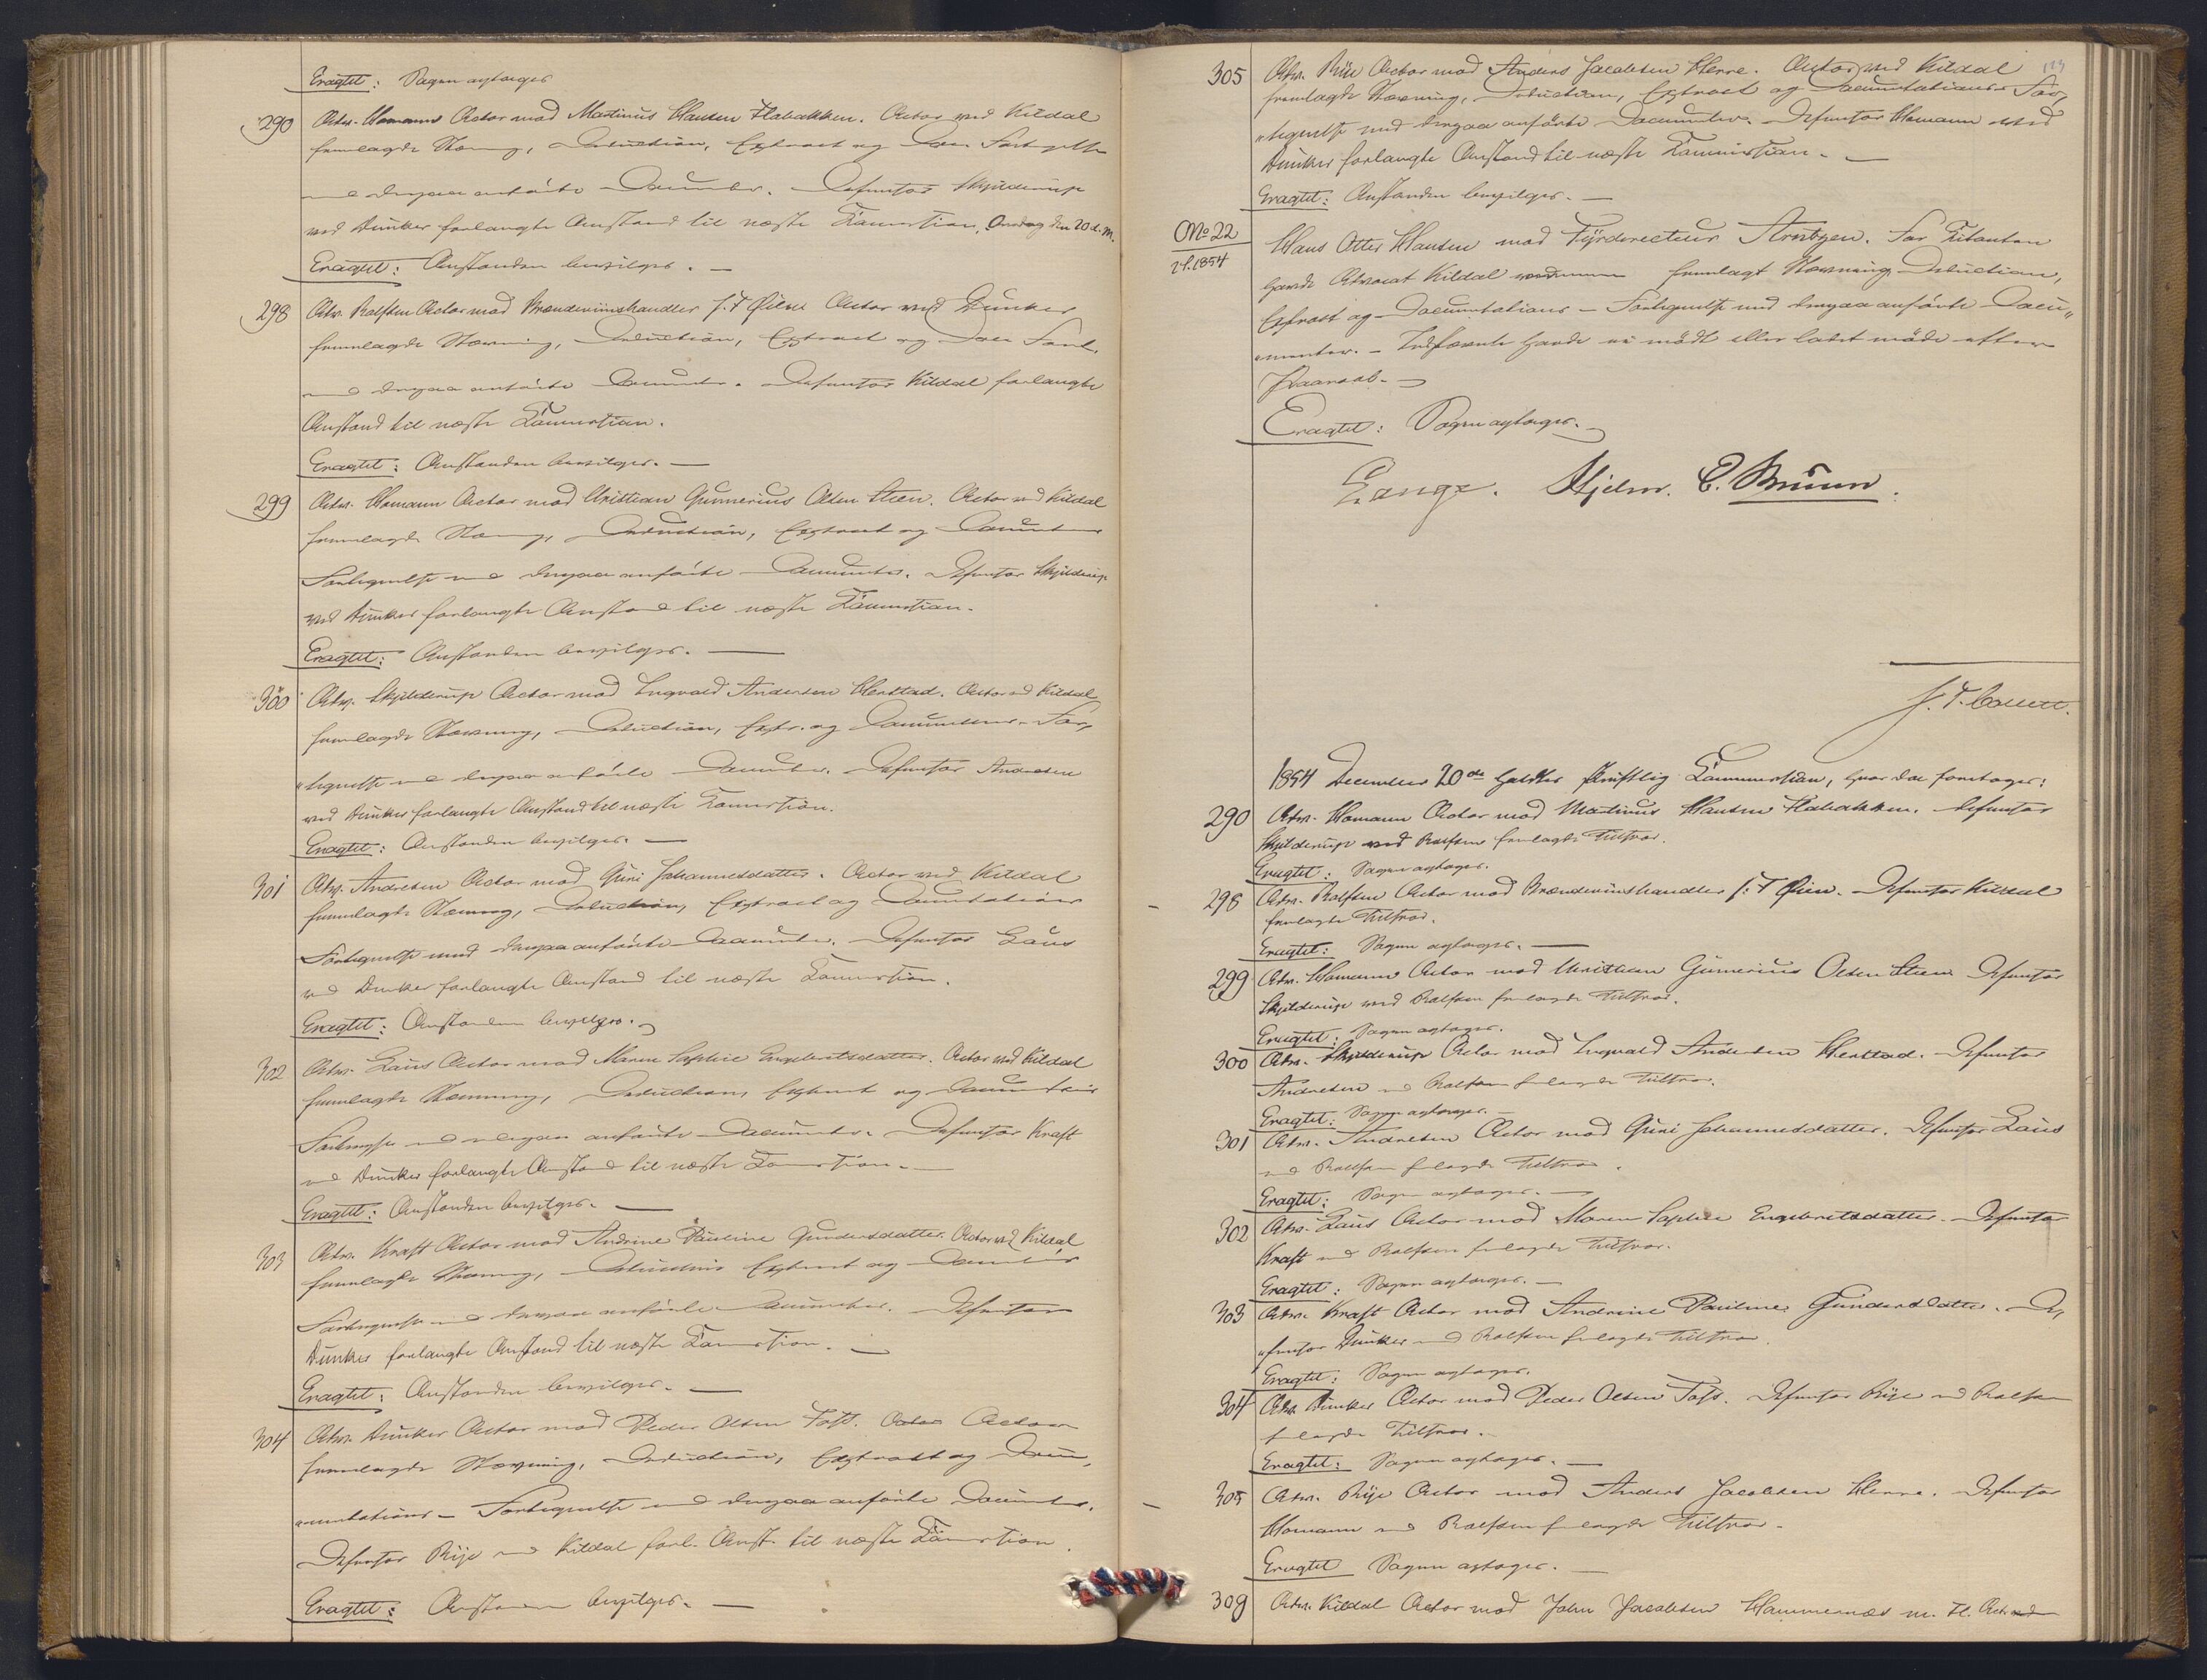 Eragtet: Sagen optages
290 Adv. Homann Actor mod Martinus Hansen Flabakken. Actor ved Kildal
fremlagde Stævning, Deduction, Extract og Doc. Fortegnelse
med derpaa anførte Documenter. Defensor Skjelderup
ved Dunker forlangte Anstand til næste Session, Onsdag den 20 d. M.
Eragtet: Anstanden bevilges. —
298 Adv. Rolfsen Actor mod Brændeviinshandler J. T. Øien Actor ved Dunker
fremlagde Stævning, Deduction, Extract og Doc. Fort.
med derpaa anførte Documenter. Defensor Kildal forlangte
Anstand til næste Session.
Eragtet: Anstanden bevilges. —
299 Adv. Homann Actor mod Christian Gunnerius Olsen Steen. Actor ved Kildal
fremlagde Stævning, Deduction, Extract og Document
Fortegnelse med derpaa anførte Documenter. Defensor Skjelderup
ved Dunker forlangte Anstand til næste Session.
Eragtet: Anstanden bevilges. —
300 Adv. Skjelderup Actor mod Ingvald Andersen Herstad. Actor ved Kildal
fremlagde Stævning, Deduction, Extr. og Documents. For,
"tegnelse med derpaa anførte Documenter. Defensor Andresen
ved Dunker forlangte Anstand til næste Session.
Eragtet: Anstanden bevilges. —
301 Adv. Andresen Actor mod Guri Johannesdatter. Actor ved Kildal
fremlagde Stævning, Deduction, Extract og Documentations
Fortegnelse med derpaa anførte Documenter. Defensor Laus
ved Dunker forlangte Anstand til næste Session.
Eragtet: Anstanden bevilges.
302 Adv. Laus Actor mod Maren Sophie Engebretsdatter. Actor ved Kildal
fremlagde Stævning, Deduction, Extract og Documentations
Fortegnelse med derpaa anførte Documenter. Defensor Kraft
ved Dunker forlangte Anstand til næste Session. —
Eragtet: Anstanden bevilges. —
303 Adv. Kraft Actor mod Andrine Pauline Gundersdatter. Actor ved Kildal
fremlagde Stævning, Deduction Extract og Documents
Fortegnelse med derpaa anførte Documenter. Defensor
Dunker forlangte Anstand til næste Session. —
Eragtet: Anstanden bevilges. —
304 Adv. Dunker Actor mod Peder Olsen Foss. Actor
fremlagde Stævning, Deduction, Extract og Docu,
"mentations - Fortegnelse med derpaa anførte Documenter.
Defensor Rije ved Kildal forl. Anst. til næste Session.
Eragtet: Anstanden bevilges. —
305 Adv. Rije Actor mod Anders Jacobsen Herre. Actor ved Kildal
fremlagde Stævning, Deduction, Extract og Documentations For,
"tegnelse med derpaa anførte Documenter. Defensor Homann ved
Dunker forlangte Anstand til næste Session. —
Eragtet: Anstanden bevilges. —
No 22
2 S. 1854
Hans Otter Hansen mod Fyrdirecteur Arntzen. For Citanten
havde Advocat Kildal fremlagt Stævning, Deduction,
Extract og Documentations - Fortegnelse med derpaa anførte Docu"
"menter. - Indstævnte havde ei mødt eller ladet møde efter
Paaraab. —
Eragtet: Sagen optages.
Lange. Hjelm. C. Bruun.
J. T. Collett.
1854 December 20de holdtes skriftlig Session, hvor da foretoges:
290 Adv. Homann Actor mod Martinus Hansen Flabakken. Defensor
Skjelderup ved Rolfsen fremlagde Tilsvar.
Eragtet: Sagen optages.
298 Adv. Rolfsen Actor mod Brændevinshandler J. T. Øien. Defensor Kildal
fremlagde Tilsvar.
Eragtet: Sagen optages. —
299 Adv. Homann Actor mod Christian Gunnerius Olsen Steen. Defensor
Skjelderup ved Rolfsen fremlagde Tilsvar.
Eragtet: Sagen optages.
300 Adv. Skjelderup Actor mod Ingvald Andersen Herstad. Defensor
Andresen ved Rolfsen fremlagde Tilsvar.
Eragtet: Sagen optages. —
301 Adv. Andresen Actor mod Guri Johannesdatter. Defensor Laus
ved Rolfsen fremlagde Tilsvar.
Eragtet: Sagen optages. —
302 Adv. Laus Actor mod Maren Sophie Engebretsdatter. Defensor
Kraft ved Rolfsen fremlagde Tilsvar.
Eragtet: Sagen optages. —
303 Adv. Kraft Actor mod Andrine Pauline Gundersdatter. De,
"fensor Dunker ved Rolfsen fremlagde Tilsvar.
Eragtet: Sagen optages.
304 Adv. Dunker Actor mod Peder Olsen Foss. Defensor Rije ved Rolfsen
fremlagde Tilsvar.
Eragtet: Sagen optages. —
305 Adv. Rije Actor mod Anders Jacobsen Herre. Defensor
Homann ved Rolfsen fremlagde Tilsvar.
Eragtet Sagen optages. —
309 Adv. Kildal Actor mod John Jacobsen Hammernæs m. Fl. Act.